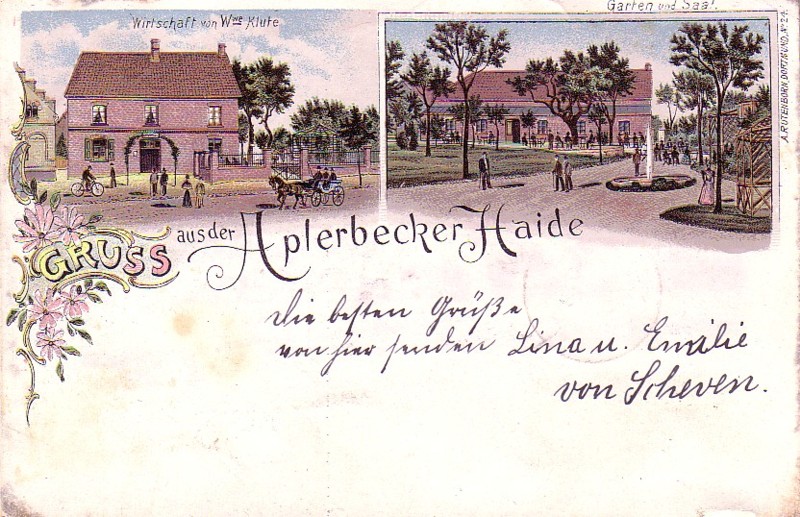 Wirtschaft von Wwe Klute
Garten und Saal.
A. RUTENBORN, DORTMUND, No 24.
GRUSS aus der Aplerbecker Haide
Die besten Grüße
von hier senden Lina u. Emilie
von Scheven.